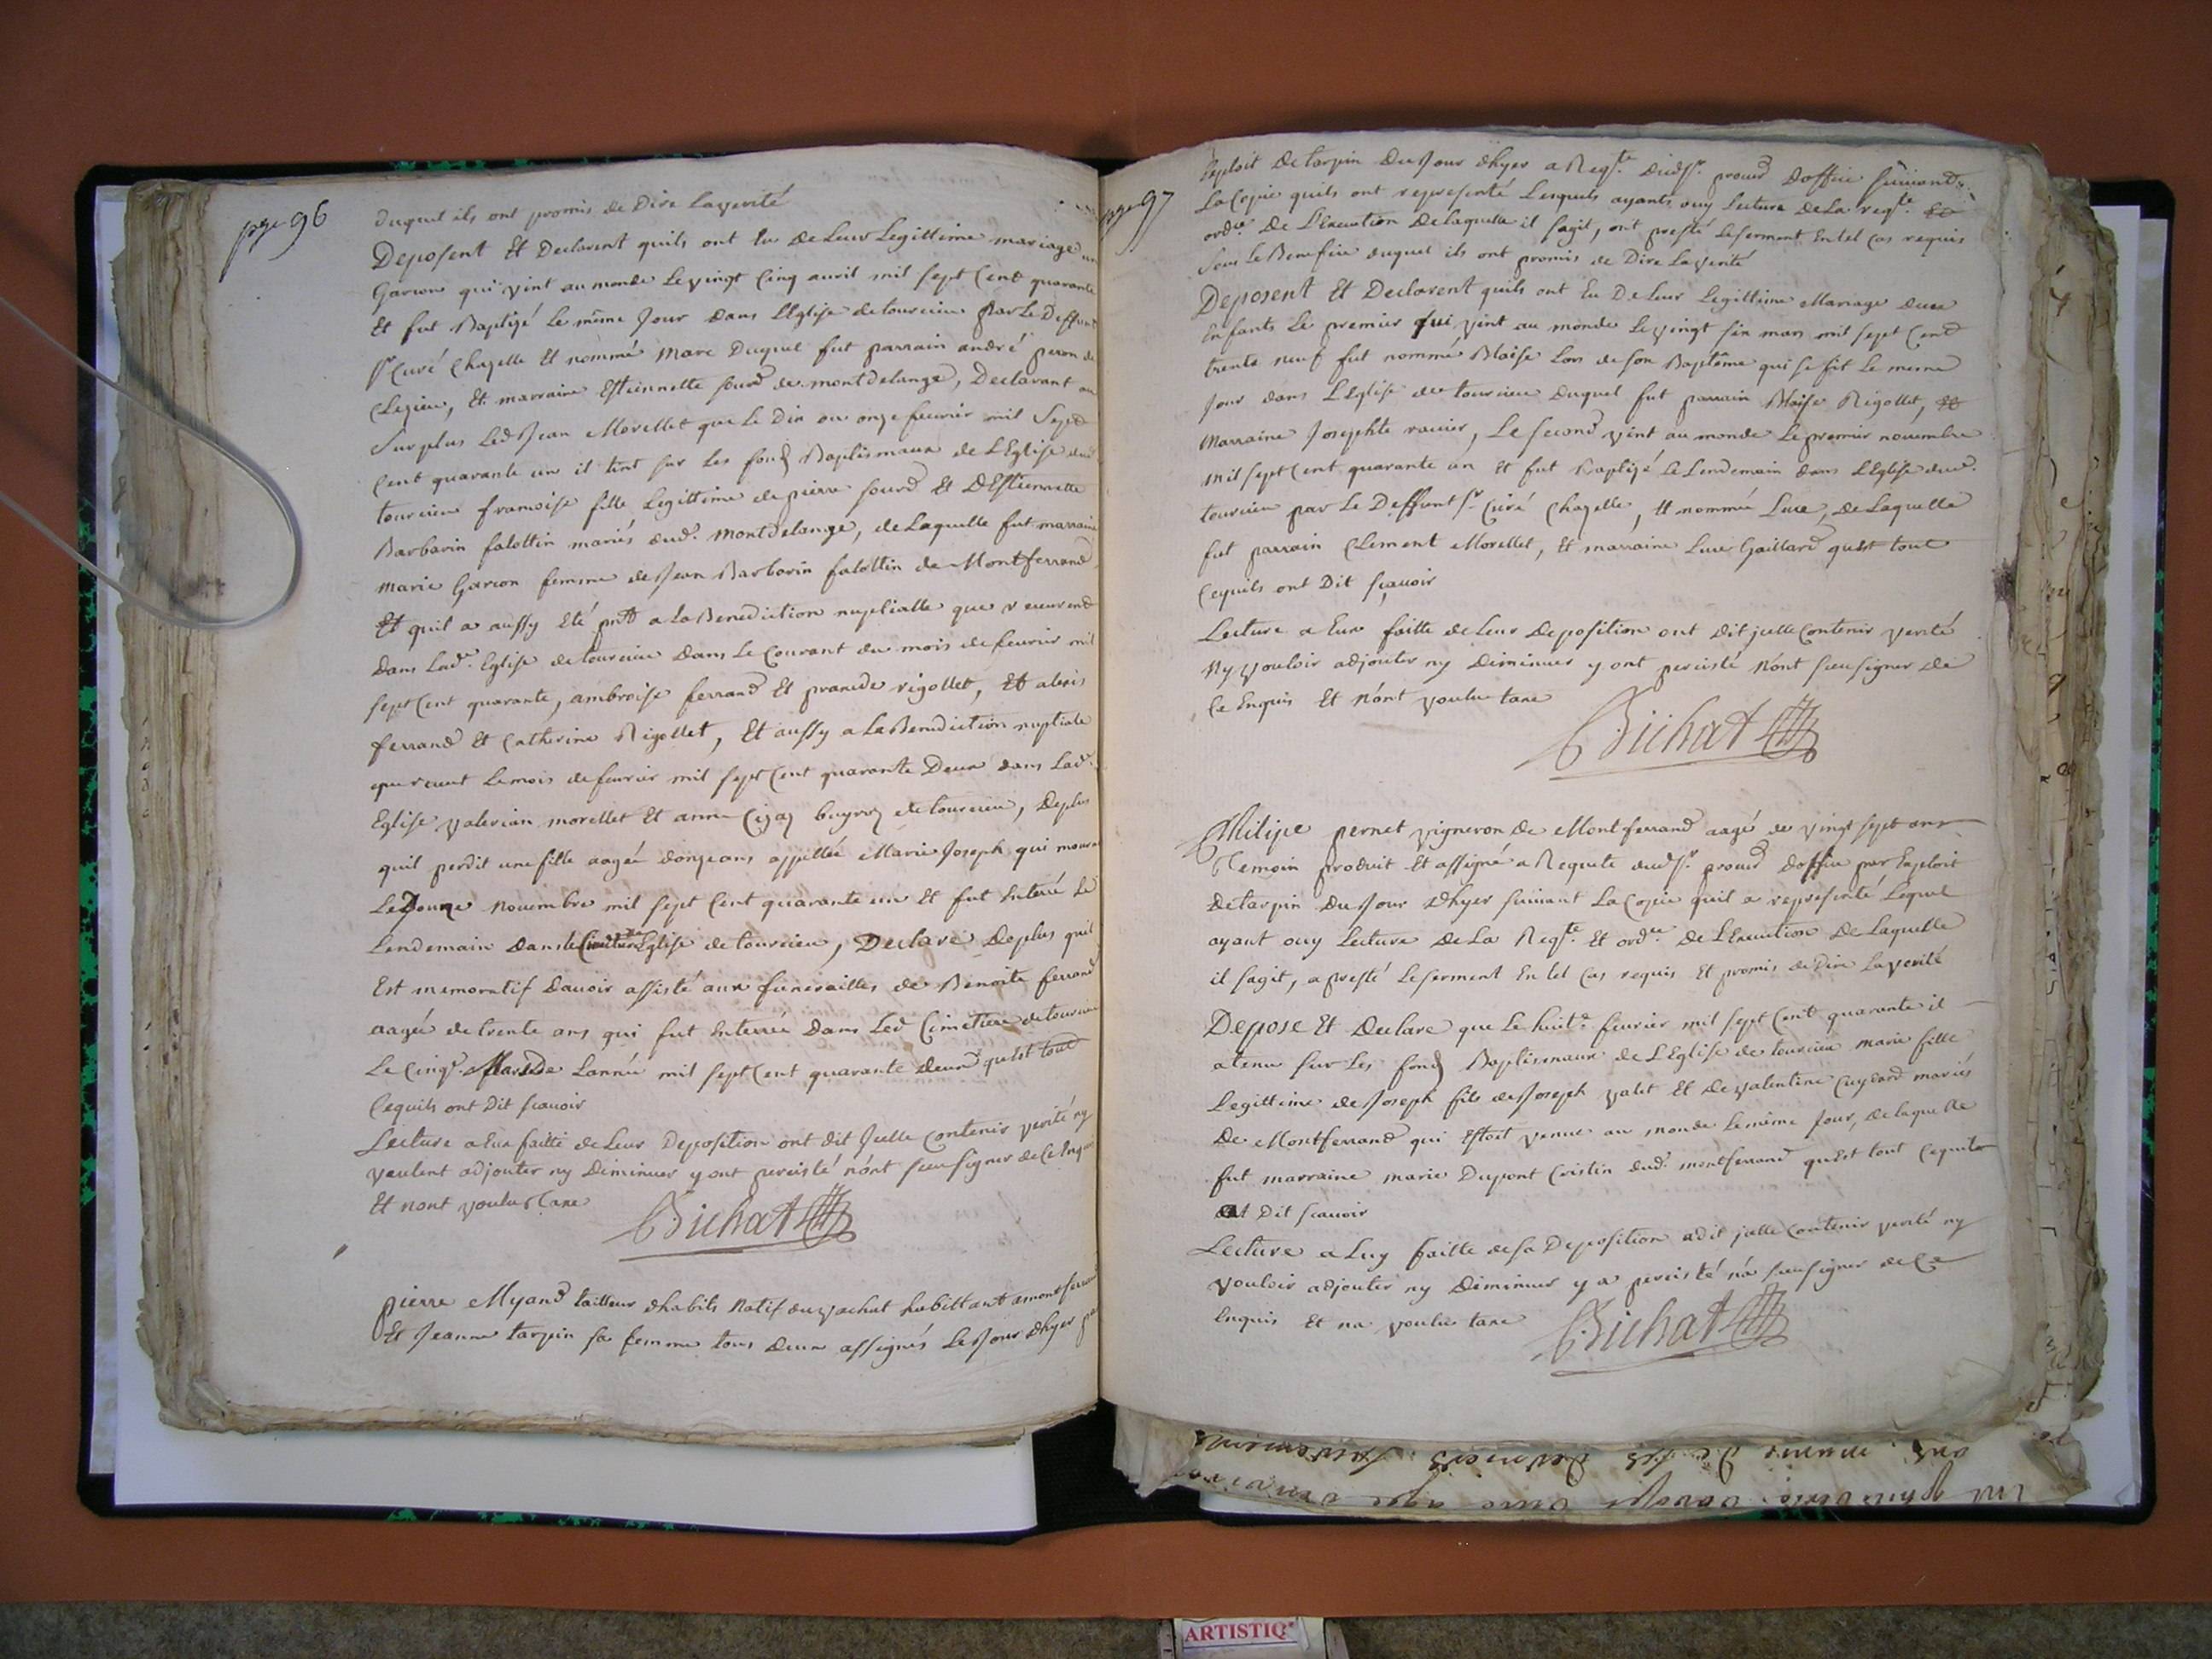 page 96
duquel ils ont promis de Dire La verité
Deposent Et Declarent quils ont Eu de Leur Legittime mariage un
Garcon qui vint au monde Le vingt Cinq auril mil sept Cent quarante
Et fut Baptizé Le même Jour dans LEglise de tourcieu Par Le Deffunt
Sr. Curé Chazelle Et nommé Marc Duquel fut parrain andré peron de
Clezieu, Et marraine Estiennette sourd de montdelange, Declarant au
Surplus Led. Jean Morellet que Le Dix ou onze feurier mil Sept
Cent quarante un il tint sur Les fonds Baptismaux de LEglise dud.
tourcieu francoise fille Legittime de pierre sourd Et DEstiennette
Barbarin falottin mariés dud. montdelange, de Laquelle fut marraine
marie Garcon femme de Jean Barbarin falottin de Montferrand
Et quil a aussy Eté pnt a La Benediction nuptialle que receurent
dans Lad. Eglise de tourcieu dans Le Courant du mois de feurier mil
sept Cent quarante, ambroise ferrand Et praxede rigollet, Et alexis
ferrand Et Catherine Rigollet, Et aussy a La Benediction nuptiale
que receut Le mois de feurier mil sept Cent quarante Deux dans Lad.
Eglise valerian morellet Et anne de tourcieu, De plus
quil perdit une fille aagée donze ans appellée Marie Joseph qui mourut
Le Douze nouembre mil sept Cent quarante un Et fut Enterré Le
Lendemain dans le Cimetiere Eglise de tourcieu, Declare De plus quil
Est memoratif Dauoir assisté aux funerailles de Benoite ferrand
aagée de trente ans qui fut Enterrée Dans Led Cimetiere de tourcieu
Le Cinqe. Mars De Lannée mil sept Cent quarante deux quest tout
Cequils ont Dit scauoir
Lecture a Eux faitte de Leur Deposition ont dit Jcelle Contenir verité ny
veulent adjouter ny Diminuer y ont percisté n'ont sceu signer de Ce
Et nont voulu taxe
Bichat
pierre Myand tailleur dhabits Natif du vachat habittant a montferrand
Et Jeanne tarpin sa femme tous deux assignés Le Jour dhyer par
page 97
Exploit de tarpin du Jour dhyer a Reqte. dud Sr. procur Doffice suivant
La Copie quils ont representé Lesquels ayants ouy Lecture de La reqte. Et
ordce De L'Execution De Laquelle il sagit, ont presté Le serment En tel Cas requis
sous Le Benefice duquel ils ont promis de Dire La verité
Deposent Et Declarent quils ont Eu De Leur Legittime Mariage deux
Enfants Le premier qui vint au monde Le vingt six mars mil sept Cent
trente neuf fut nommé Blaise Lors de son Baptême qui se fit Le meme
Jour dans L'Eglise de tourcieu Duquel fut parrain Blaise Rigollet, Et
Marraine Josephte racier, Le second vint au monde Le premier nouembre
mil sept Cent quarante un Et fut Baptizé Le Lendemain dans LEglise dud.
tourcieu par Le Deffunt Sr. Curé Chazelle, Et nommée Luce, de Laquelle
fut parrain Clement Morellet, Et marraine Luce Gaillard quest tout
Cequils ont Dit sçauoir
Lecture a Eux faitte de Leur Deposition ont dit jcelle Contenir verité
Ny vouloir adjouter ny Diminuer y ont percisté N'ont sceu signer de
Ce Enquis Et N'ont voulu taxe
Bichat
Philipe pernet vigneron de Montferrand aagé de vingt sept ans
Temoin produit Et assigné a Requete dud Sr. procur Doffice par Exploit
De tarpin Du Jour Dhyer suiuant La Copie quil a representé Lequel
ayant ouy Lecture De La Reqte. Et ordce De LExecution De Laquelle
il sagit, a presté Le serment En tel Cas requis Et promis de Dire La verité
Depose Et Declare que Le huite. feurier mil sept Cent quarante il
a tenu sur Les fonds Baptismaux de LEglise de tourcieu marie fille
Legittime de Joseph fils de Joseph valet Et de valentine Cuydard mariés
De Montferrand qui Estoit venue au monde Le même Jour, de laquelle
fut marraine marie Dupont Cristin dud. montferrand quest tout Cequil
a Dit scauoir
Lecture a Luy faitte de sa Deposition a dit jcelle Contenir verité ny
vouloir adjouter ny Diminuer y a percisté n'a sceu signer de Ce
Enquis Et na voulu taxe
Bichat
ARTISTIQ